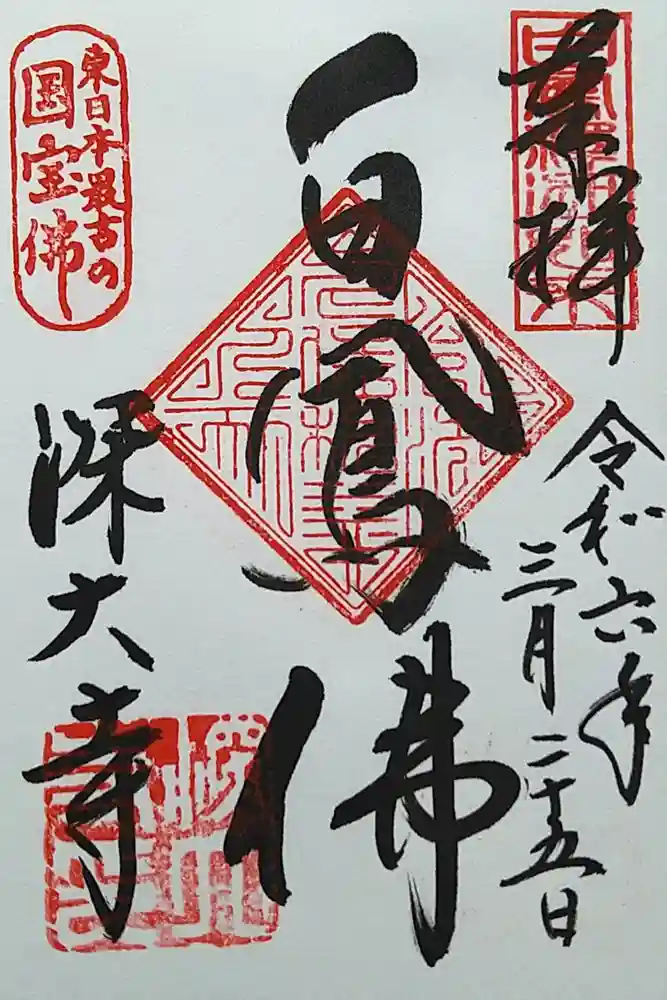 奉拝
令和六年
三月二十五日
白鳳佛
東日本最古の
国宝佛
深大寺